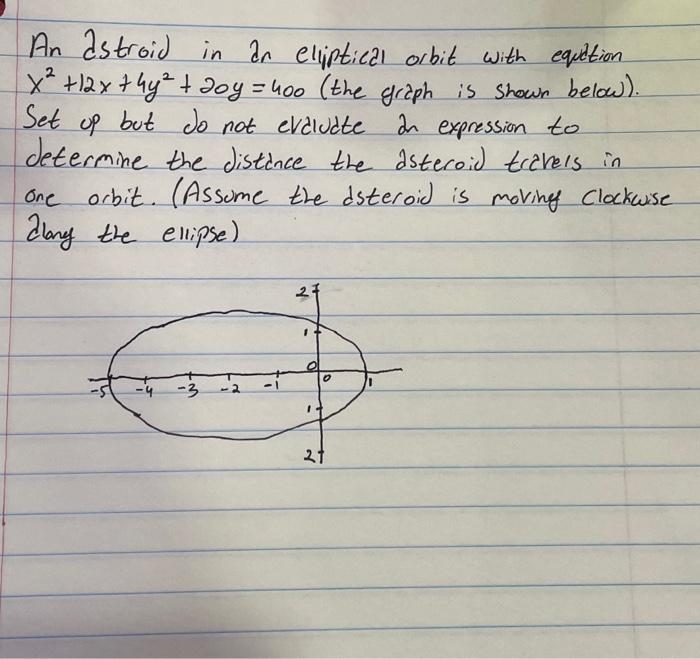 An astroid in an elliptical orbit with equation
x² +12x + 4y² + 20y = 400 (the graph is shown below).
Set up but do not evaluate an expression to
determine the distance the asteroid travels in
one orbit. (Assume the asteroid is moving clockwise
along the ellipse)
2
1
0
-5 -4 -3 -2 -1 0 1
1
2